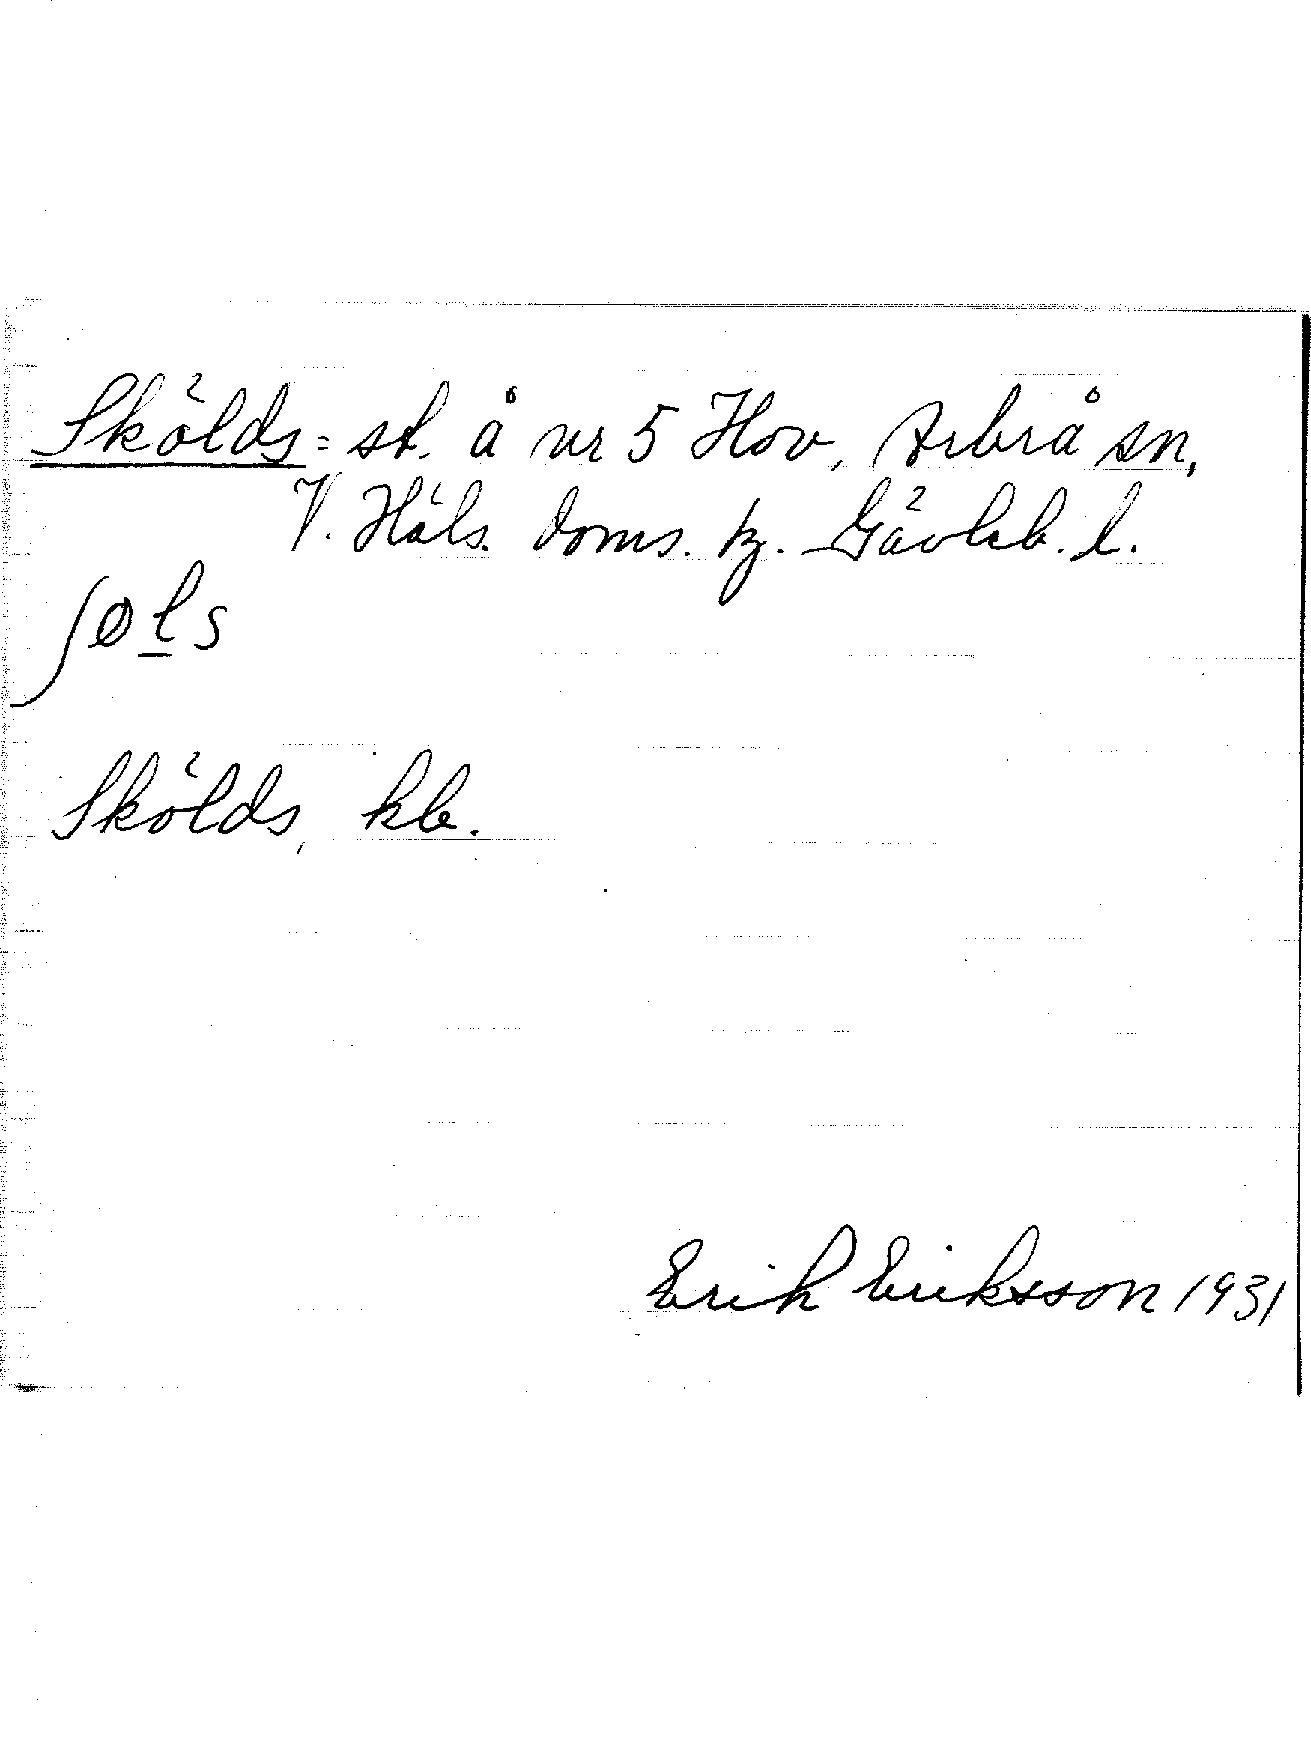 Skölds = st. å nr 5 Hov, Arbrå sn,
V. Häls. doms. tg. Gävleb. l.
ʃøls
Skölds, kb.
Erik Eriksson 1931